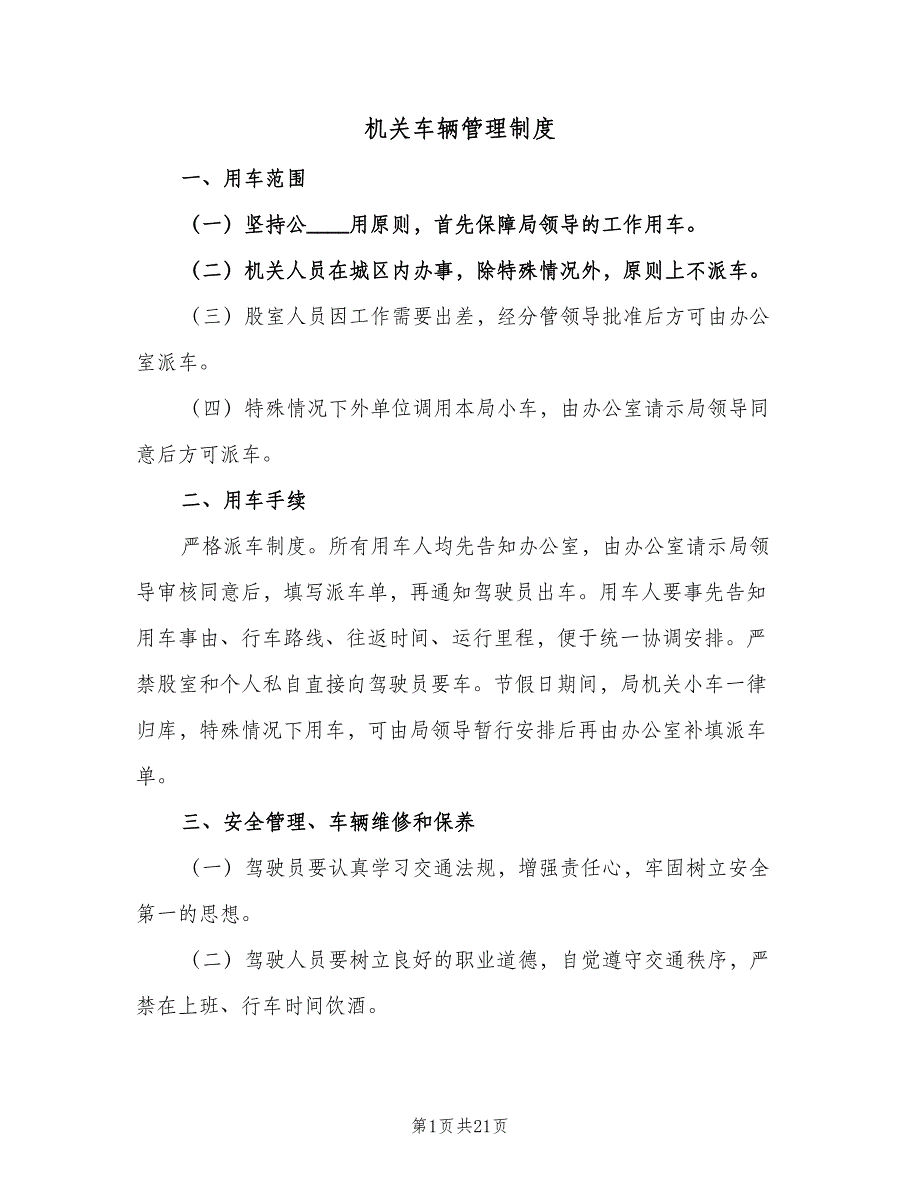 机关车辆管理制度
一、用车范围
（一）坚持公____用原则，首先保障局领导的工作用车。
（二）机关人员在城区内办事，除特殊情况外，原则上不派车。
（三）股室人员因工作需要出差，经分管领导批准后方可由办公
室派车。
（四）特殊情况下外单位调用本局小车，由办公室请示局领导同
意后方可派车。
二、用车手续
严格派车制度。所有用车人均先告知办公室，由办公室请示局领
导审核同意后，填写派车单，再通知驾驶员出车。用车人要事先告知
用车事由、行车路线、往返时间、运行里程，便于统一协调安排。严
禁股室和个人私自直接向驾驶员要车。节假日期间，局机关小车一律
归库，特殊情况下用车，可由局领导暂行安排后再由办公室补填派车
单。
三、安全管理、车辆维修和保养
（一）驾驶员要认真学习交通法规，增强责任心，牢固树立安全
第一的思想。
（二）驾驶人员要树立良好的职业道德，自觉遵守交通秩序，严
禁在上班、行车时间饮酒。
第1页共21页